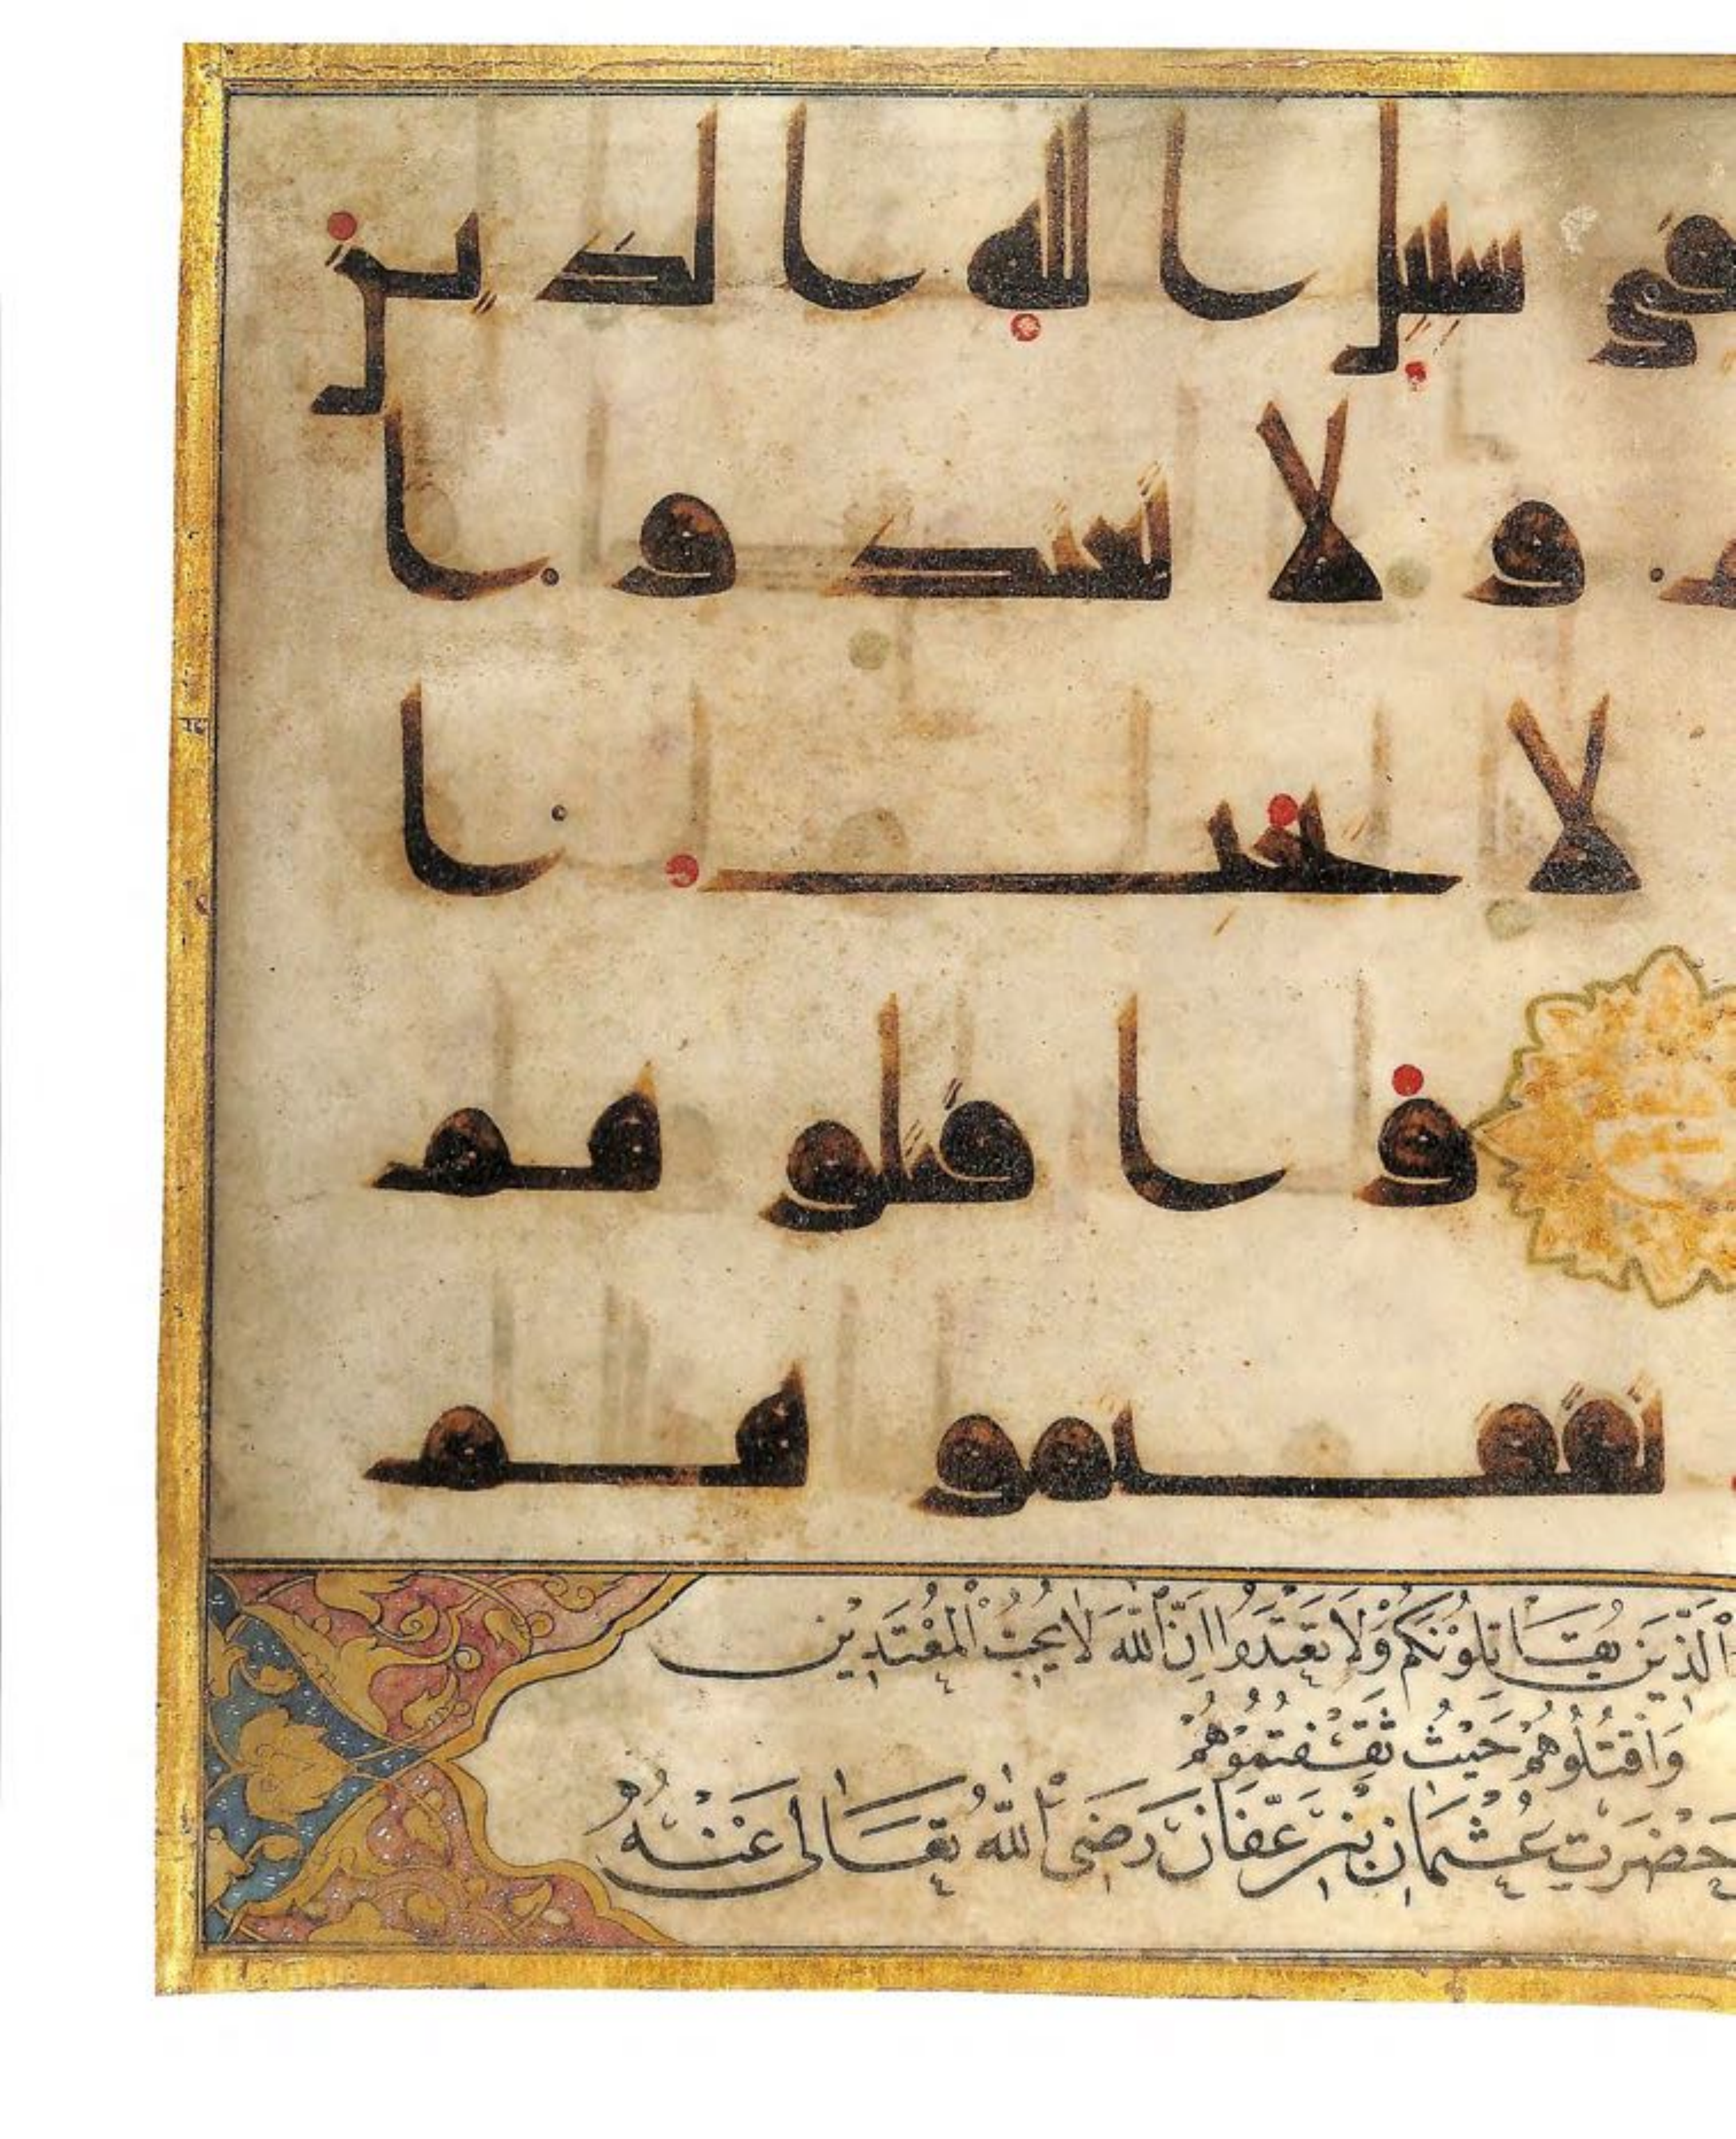 في سبيل الله الذين
و لا تعتدوا
لا يحب ا
و ا قتلو هم
ثقفتموهم
الَّذِينَ يُقَاتِلُونَكُمْ وَلَا تَعْتَدُوا اِنَّ اللّٰهَ لَا يُحِبُّ الْمُعْتَدِينَ
وَاقْتُلُوهُمْ حَيْثُ ثَقِفْتُمُوهُمْ
حَضْرَتِ عُثْمَانِ بْنِ عَفَّانَ رَضِىَ اللّٰهُ تَعَالَى عَنْهُ